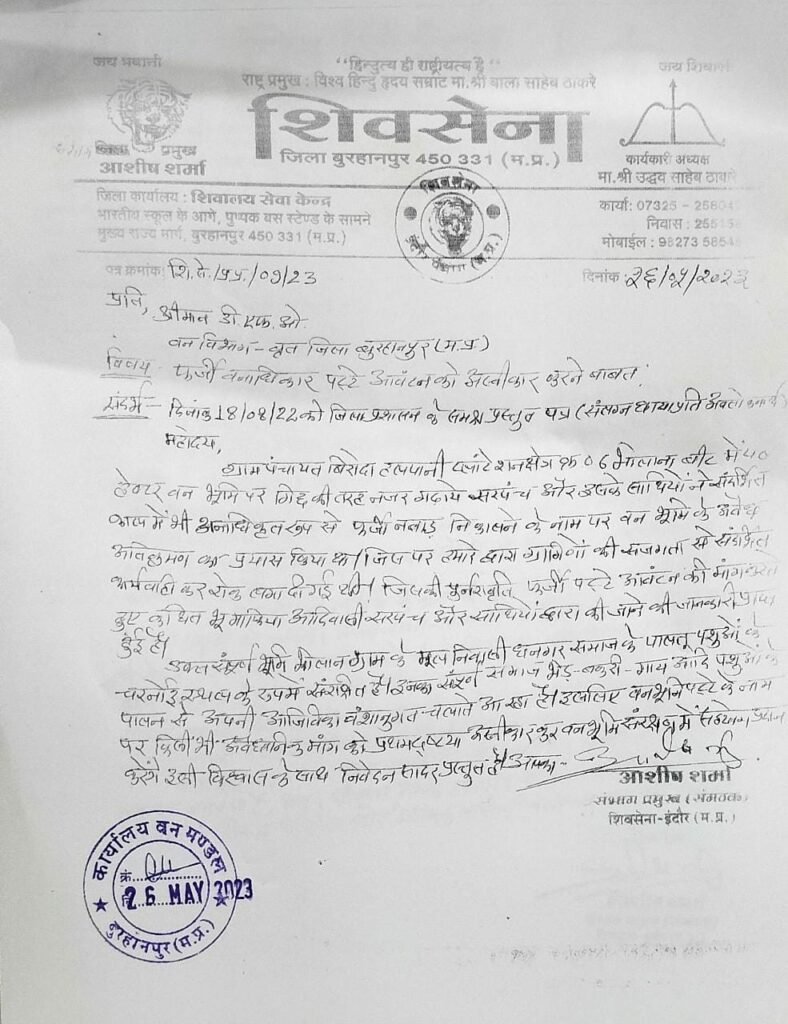 जय भवानी
"हिन्दुत्व ही राष्ट्रीयत्व है"
जय शिवाजी
राष्ट्र प्रमुख : विश्व हिन्दु हृदय सम्राट मा.श्री बाला साहेब ठाकरे
शिवसेना
जिला बुरहानपुर 450 331 (म.प्र.)
जिला प्रमुख
आशीष शर्मा
कार्यकारी अध्यक्ष
मा.श्री उद्धव साहेब ठाकरे
जिला कार्यालय : शिवालय सेवा केन्द्र
भारतीय स्कूल के आगे, पुष्पक बस स्टेण्ड के सामने
मुख्य राज्य मार्ग, बुरहानपुर 450 331 (म.प्र.)
शिवसेना
(म.प्र.)
कार्या: 07325 -
निवास :
मोबाईल : 98273
पत्र क्रमांक: शि.से./प्र.प्र./09/23
दिनांक : २६/५/२०२३
प्रति,
श्रीमान डी.एफ.ओ.
वन विभाग - वृत जिला बुरहानपुर (म.प्र)
विषय - फर्जी वनाधिकार पट्टे आवंटन को अस्वीकार करने बाबत।
संदर्भ - दिनांक 18/08/22 को जिला प्रशासन के समक्ष प्रस्तुत पत्र (संलग्न छायाप्रति
महोदय,
ग्राम पंचायत बिरोदा प्लांटेशन क्षेत्र क्र 06 भोलाना बीट में
हेक्टर वन भूमि पर गिद्द की तरह नजर गढाये सरपंच और उसके साथियों ने संदर्भित
में भी अनाधिकृत रूप से फर्जी नवाड़ निकालने के नाम पर वन भूमि के अवैध
का प्रयास किया था। जिस पर हमारे द्वारा ग्रामिणों की सजगता से संदर्भित
कार्यवाही कर रोक लगा दी गई थी। जिसकी फर्जी पट्टे आवंटन की मांग करते
हुए कथित भू माफिया आदिवासी सरपंच और साथियों द्वारा की जाने की जानकारी प्राप्त
हुई है।
उक्त संपूर्ण भूमि भोलाना ग्राम के मूल निवासी धनगर समाज के पालतू पशुओं के
चरनोई स्थल के रूप में संरक्षित है। इनका संपूर्ण समाज भेड़-बकरी-गाय आदि पशुओं के
पालन से अपनी आजिविका वंशानुगत चलाते आ रहा है। इसलिए वन भूमि पट्टे के नाम
पर किसी भी अवैधानिक मांग को प्रथमदृष्टया अस्वीकार कर वन भूमि संरक्षण में सहयोग प्रदान
करेंगे इसी विश्वास के साथ निवेदन सादर प्रस्तुत है। आपका-
आशीष शर्मा
संभाग प्रमुख (संगठक)
शिवसेना-इंदौर (म.प्र.)
कार्यालय वन मण्डल
क्रं.
26 MAY 2023
बुरहानपुर (म.प्र.)